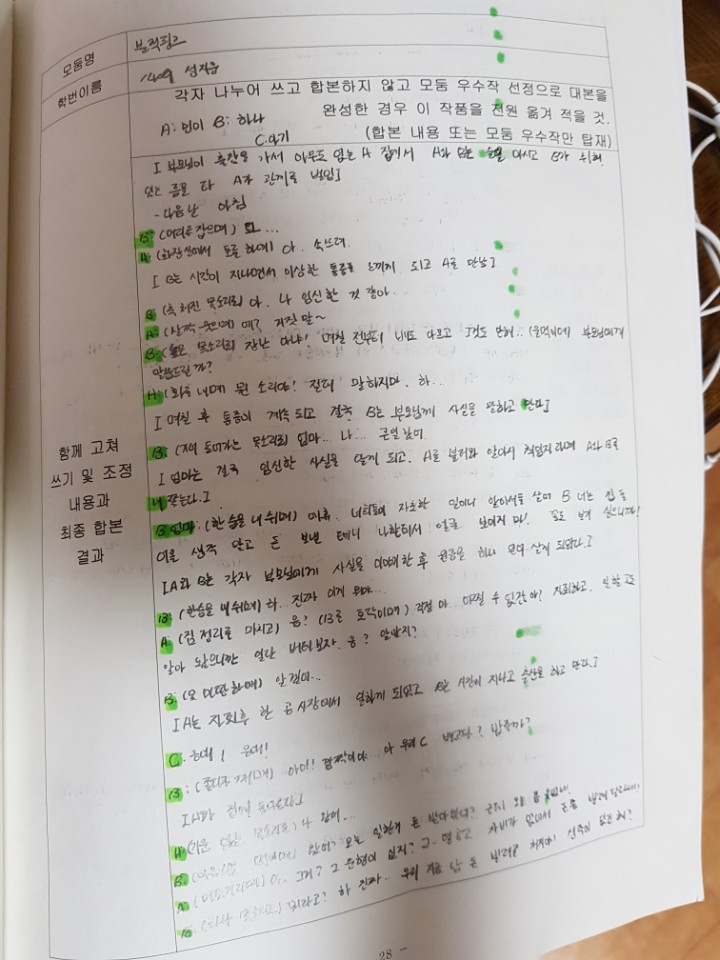 모둠명 블랙핑크
학번이름 1409
각자 나누어 쓰고 합본하지 않고 모둠 우수작 선정으로 대본을
완성한 경우 이 작품을 전원 옮겨 적을 것.
A: 민이 B: 하나
C: 아기 (합본 내용 또는 모둠 우수작만 탑재)
[부모님이 출장을 가서 아무도 없는 A 집에서 A와 B는 술을 마시고 B가 취해
있는 틈을 타 A가 관계를 맺음]
- 다음날 아침
B: (머리를 잡으며)
A: (화장실에서 토를 하며) 아.. 속쓰려
[B는 시간이 지나면서 이상한 통증을 느끼게 되고 A를 만남]
B: (축 처진 목소리로) 야. 나 임신한 것 같아..
A: (살짝 웃으며) 에? 거짓말~
B: 목소리로) 장난 아냐! 며칠 전부터 배도 아프고 부모님에게
말씀드릴까?
A: (화를 내며) 뭔 소리야! 절대 말하지마. 하...
[며칠 후 통증이 계속 되고 결국 B는 부모님께 사실을 말하고 만다]
B: 목소리로) 엄마... 나... 큰일 났어
[엄마는 결국 임신한 사실을 알게 되고, A를 불러와 알아서 책임지라며 A와 B를
내쫓는다.]
B 엄마: (한숨을 내쉬며) 어휴. 너희들이 자초한 일이니 알아서들 살아 B 너는 집
생각 말고 돈 보낼 테니 나한테서 얼굴 보이지 마! 꼴도 보기 싫으니까!
[A와 B는 각자 부모님에게 사실을 이야기한 후 원룸을 하나 얻어 살게 되었다.]
B: (한숨을 내쉬며) 하... 진짜 이게 뭐야...
A: (짐 정리를 마치고) 응? (B를 토닥이며) 걱정 마... 어쩔 수 없잖아! 자퇴하고, 일할 곳도
알아 놨으니깐 일단 버텨보자. 응? 알았지?
B: (못 마땅하며) 알겠어..
[A는 자퇴후 한 공사장에서 일하게 되었고 B는 시간이 지나고 출산을 하고 만다.]
C: 응애! 응애!
B: 아이! 깜짝이야... 아 우리 C 배고파? 밥줄까?
[A가 집에 들어온다]
A: (기운 없는 목소리로) 나 왔어...
B: 왔어? 오늘 일한거 돈 받아왔어?
A: 아, 그게?
B: 뭐라고? 하 진짜.. 우리 지금
함께 고쳐
쓰기 및 조정
내용과
최종 합본
결과
28 -